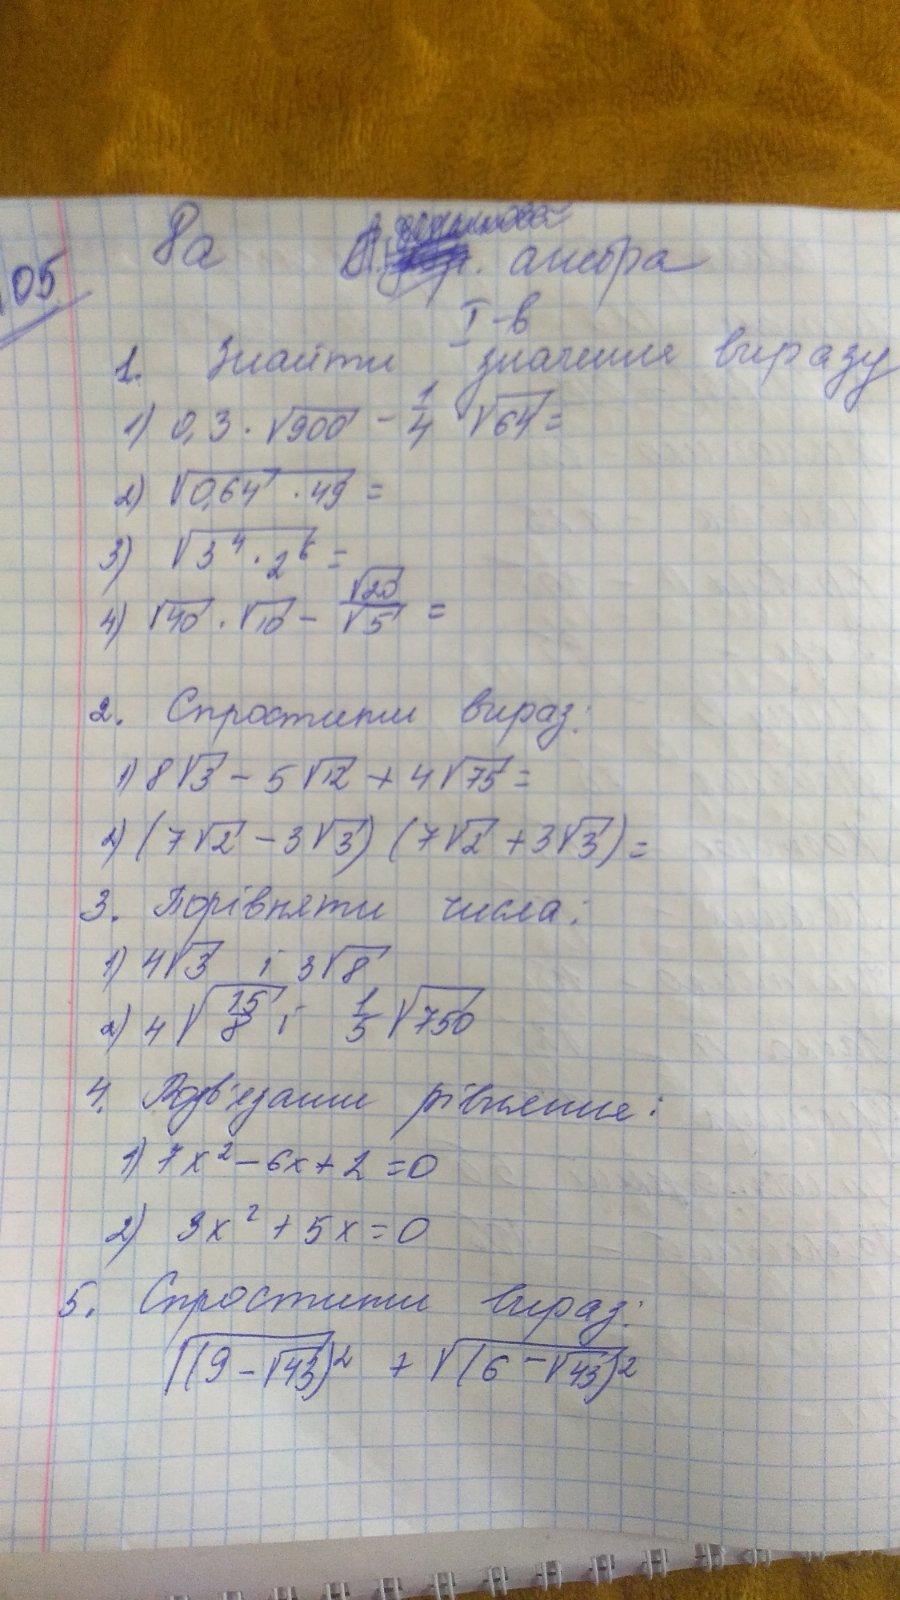 05
8а алгебра
I-в
1. Знайти значення виразу
1) 0,3 · √900 - 1/4 √64 =
2) √(0,64 · 49) =
3) √(3⁴ · 2⁶) =
4) √40 · √10 - √20/√5 =
2. Спростити вираз:
1) 8√3 - 5√12 + 4√75 =
2) (7√2 - 3√3) (7√2 + 3√3) =
3. Порівняти числа:
1) 4√3 і 3√8
2) 4√(15/8) і 1/5 √750
4. Розв'язати рівняння:
1) 7x² - 6x + 2 = 0
2) 3x² + 5x = 0
5. Спростити вираз:
√(9 - √43)² + √(6 - √43)²